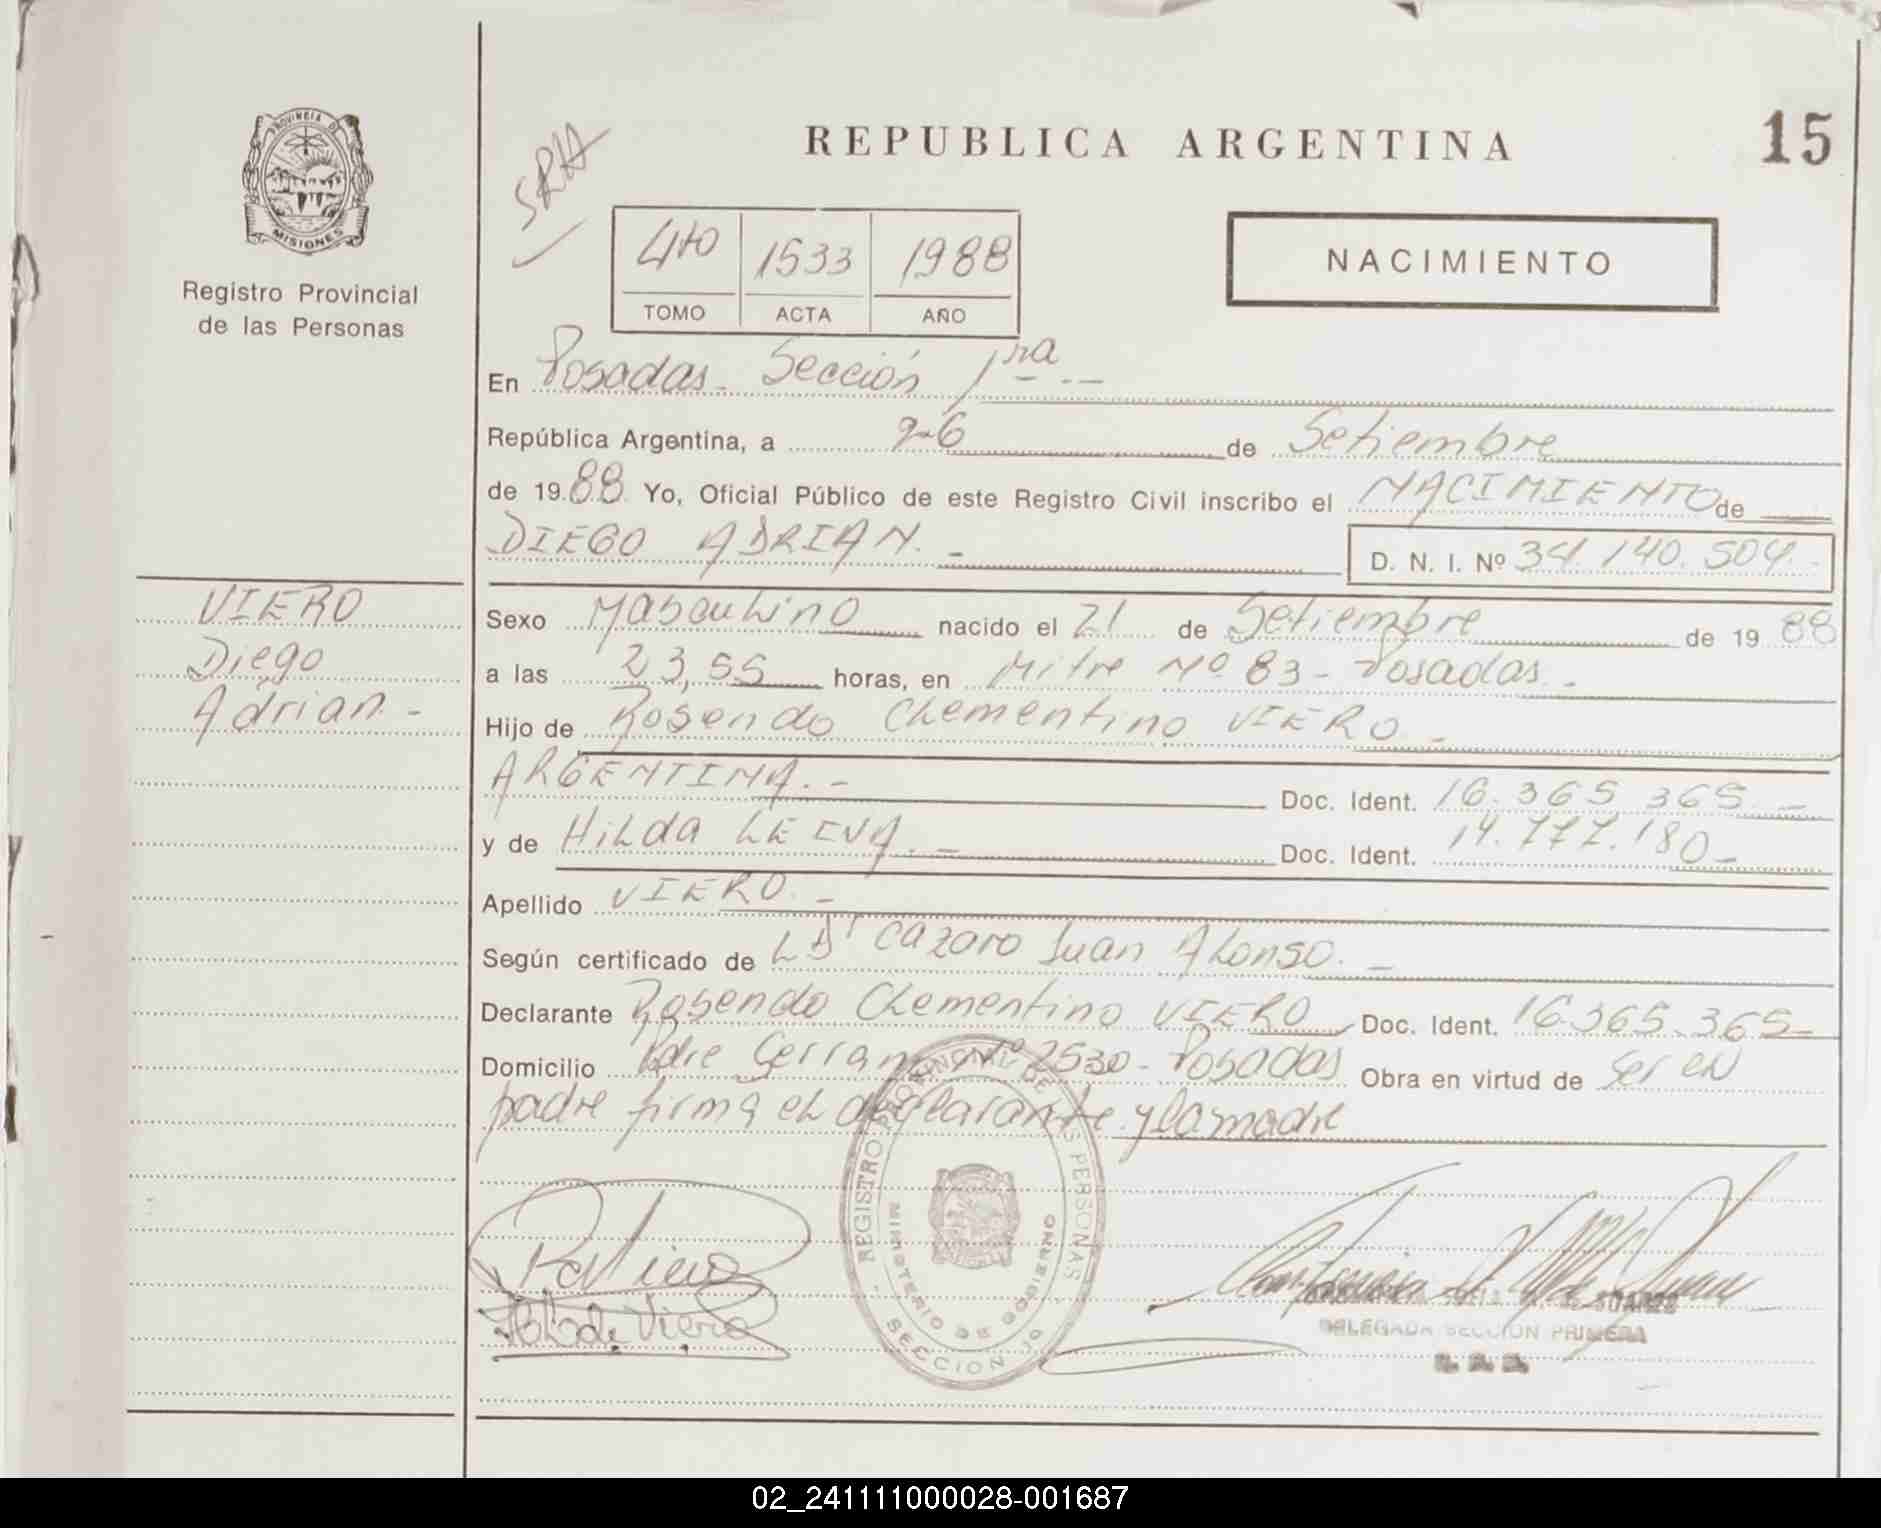 PROVINCIA DE
MISIONES
Registro Provincial
de las Personas
VIERO
Diego
Adrian -
SRH
REPUBLICA ARGENTINA
15
4to 1533 1988
TOMO ACTA AÑO
NACIMIENTO
En Posadas - Sección 1ra - . -
República Argentina, a 26 de Setiembre
de 1988 Yo, Oficial Público de este Registro Civil inscribo el NACIMIENTO de
DIEGO ADRIAN. -
D. N. I. Nº 34.140.504.-
Sexo Masculino nacido el 21 de Setiembre de 1988
a las 23,55 horas, en Mitre Nº 83 - Posadas. -
Hijo de Rosendo Clementino VIERO. -
ARGENTINA. - Doc. Ident. 16.365 365. -
y de Hilda LEIVA. - Doc. Ident. 14.777.180 -
Apellido VIERO. -
Según certificado de Juan Alonso. -
Declarante Rosendo Clementino VIERO Doc. Ident. 16.365.365 -
Domicilio Pdre Serrano Nº 2530 - Posadas Obra en virtud de ser el
padre firma el declarante y la madre
REGISTRO PROVINCIAL DE LAS PERSONAS
MINISTERIO DE GOBIERNO
SECCION
Viero
Hilda de Viero
SUAREZ
DELEGADA SECCION PRIMERA
02_241111000028-001687